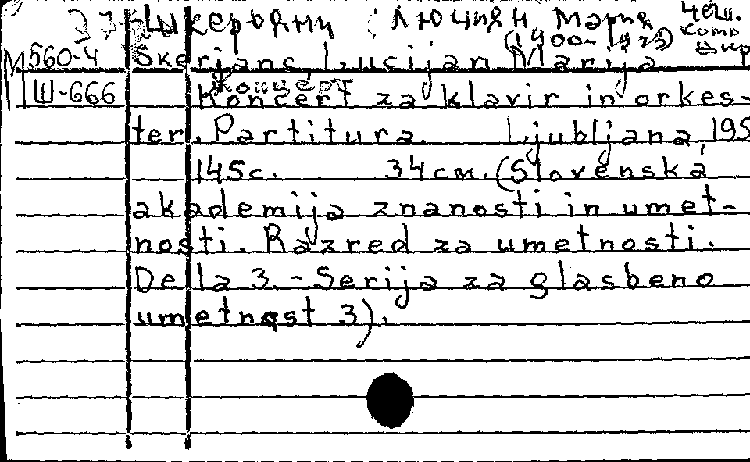 Шкерьянц Люциян Мария Чеш.
(1900-1973) комп
М 560-4 Skerjanc, Lucijan Marija дир
Концерт
Ш-666 Koncert za klavir in orkes-
ter. Partitura. Ljubljana, 195
145с. 34см. (Slovenska
akademija znanosti in umet-
nosti. Razred za umetnosti.
Della 3.-Serija za glasbeno
umetnost 3).